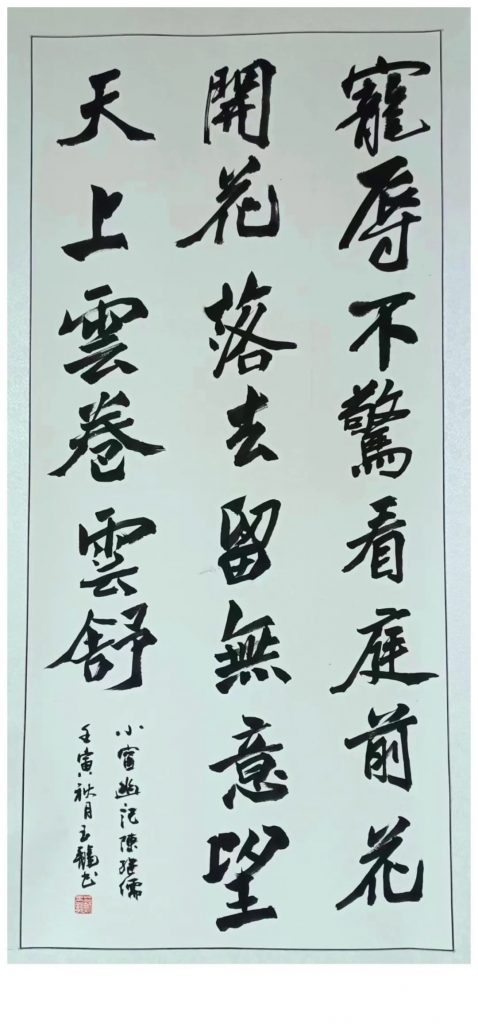 寵辱不驚看庭前花
開花落去留無意望
天上雲卷雲舒
小窗幽记陳继儒
壬寅秋月玉龍书